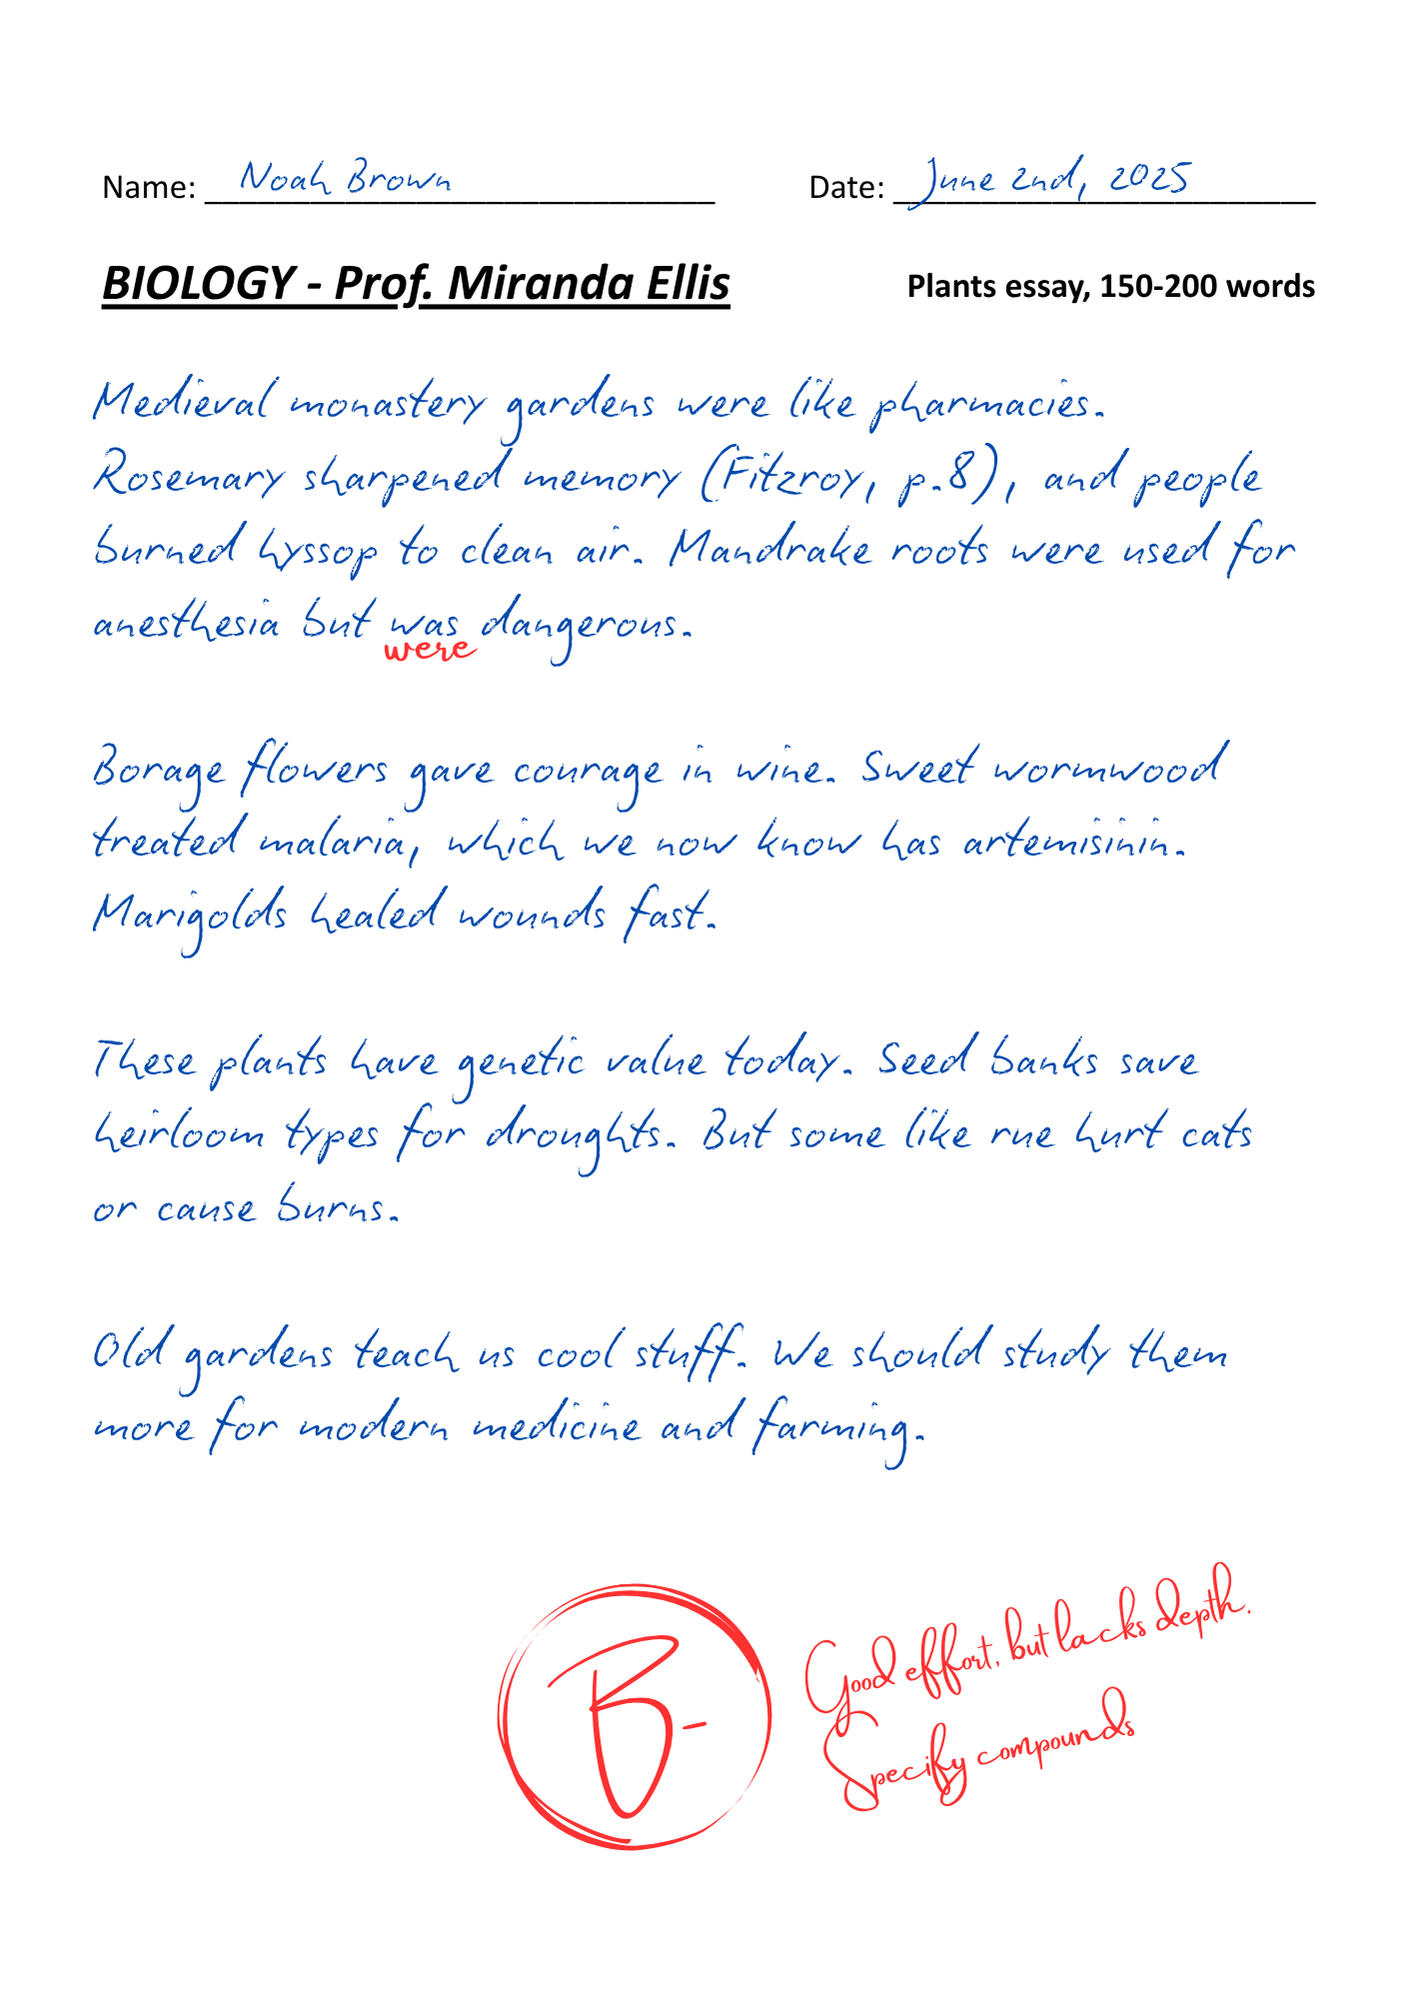 Name: Noah Brown Date: June 2nd, 2025
BIOLOGY - Prof. Miranda Ellis Plants essay, 150-200 words
Medieval monastery gardens were like pharmacies.
Rosemary sharpened memory (Fitzroy, p.8), and people
burned hyssop to clean air. Mandrake roots were used for
anesthesia but was dangerous.
were
Borage flowers gave courage in wine. Sweet wormwood
treated malaria, which we now know has artemisinin.
Marigolds healed wounds fast.
These plants have genetic value today. Seed banks save
heirloom types for droughts. But some like rue hurt cats
or cause burns.
Old gardens teach us cool stuff. We should study them
more for modern medicine and farming.
B-
Good effort, but lacks depth.
Specify compounds